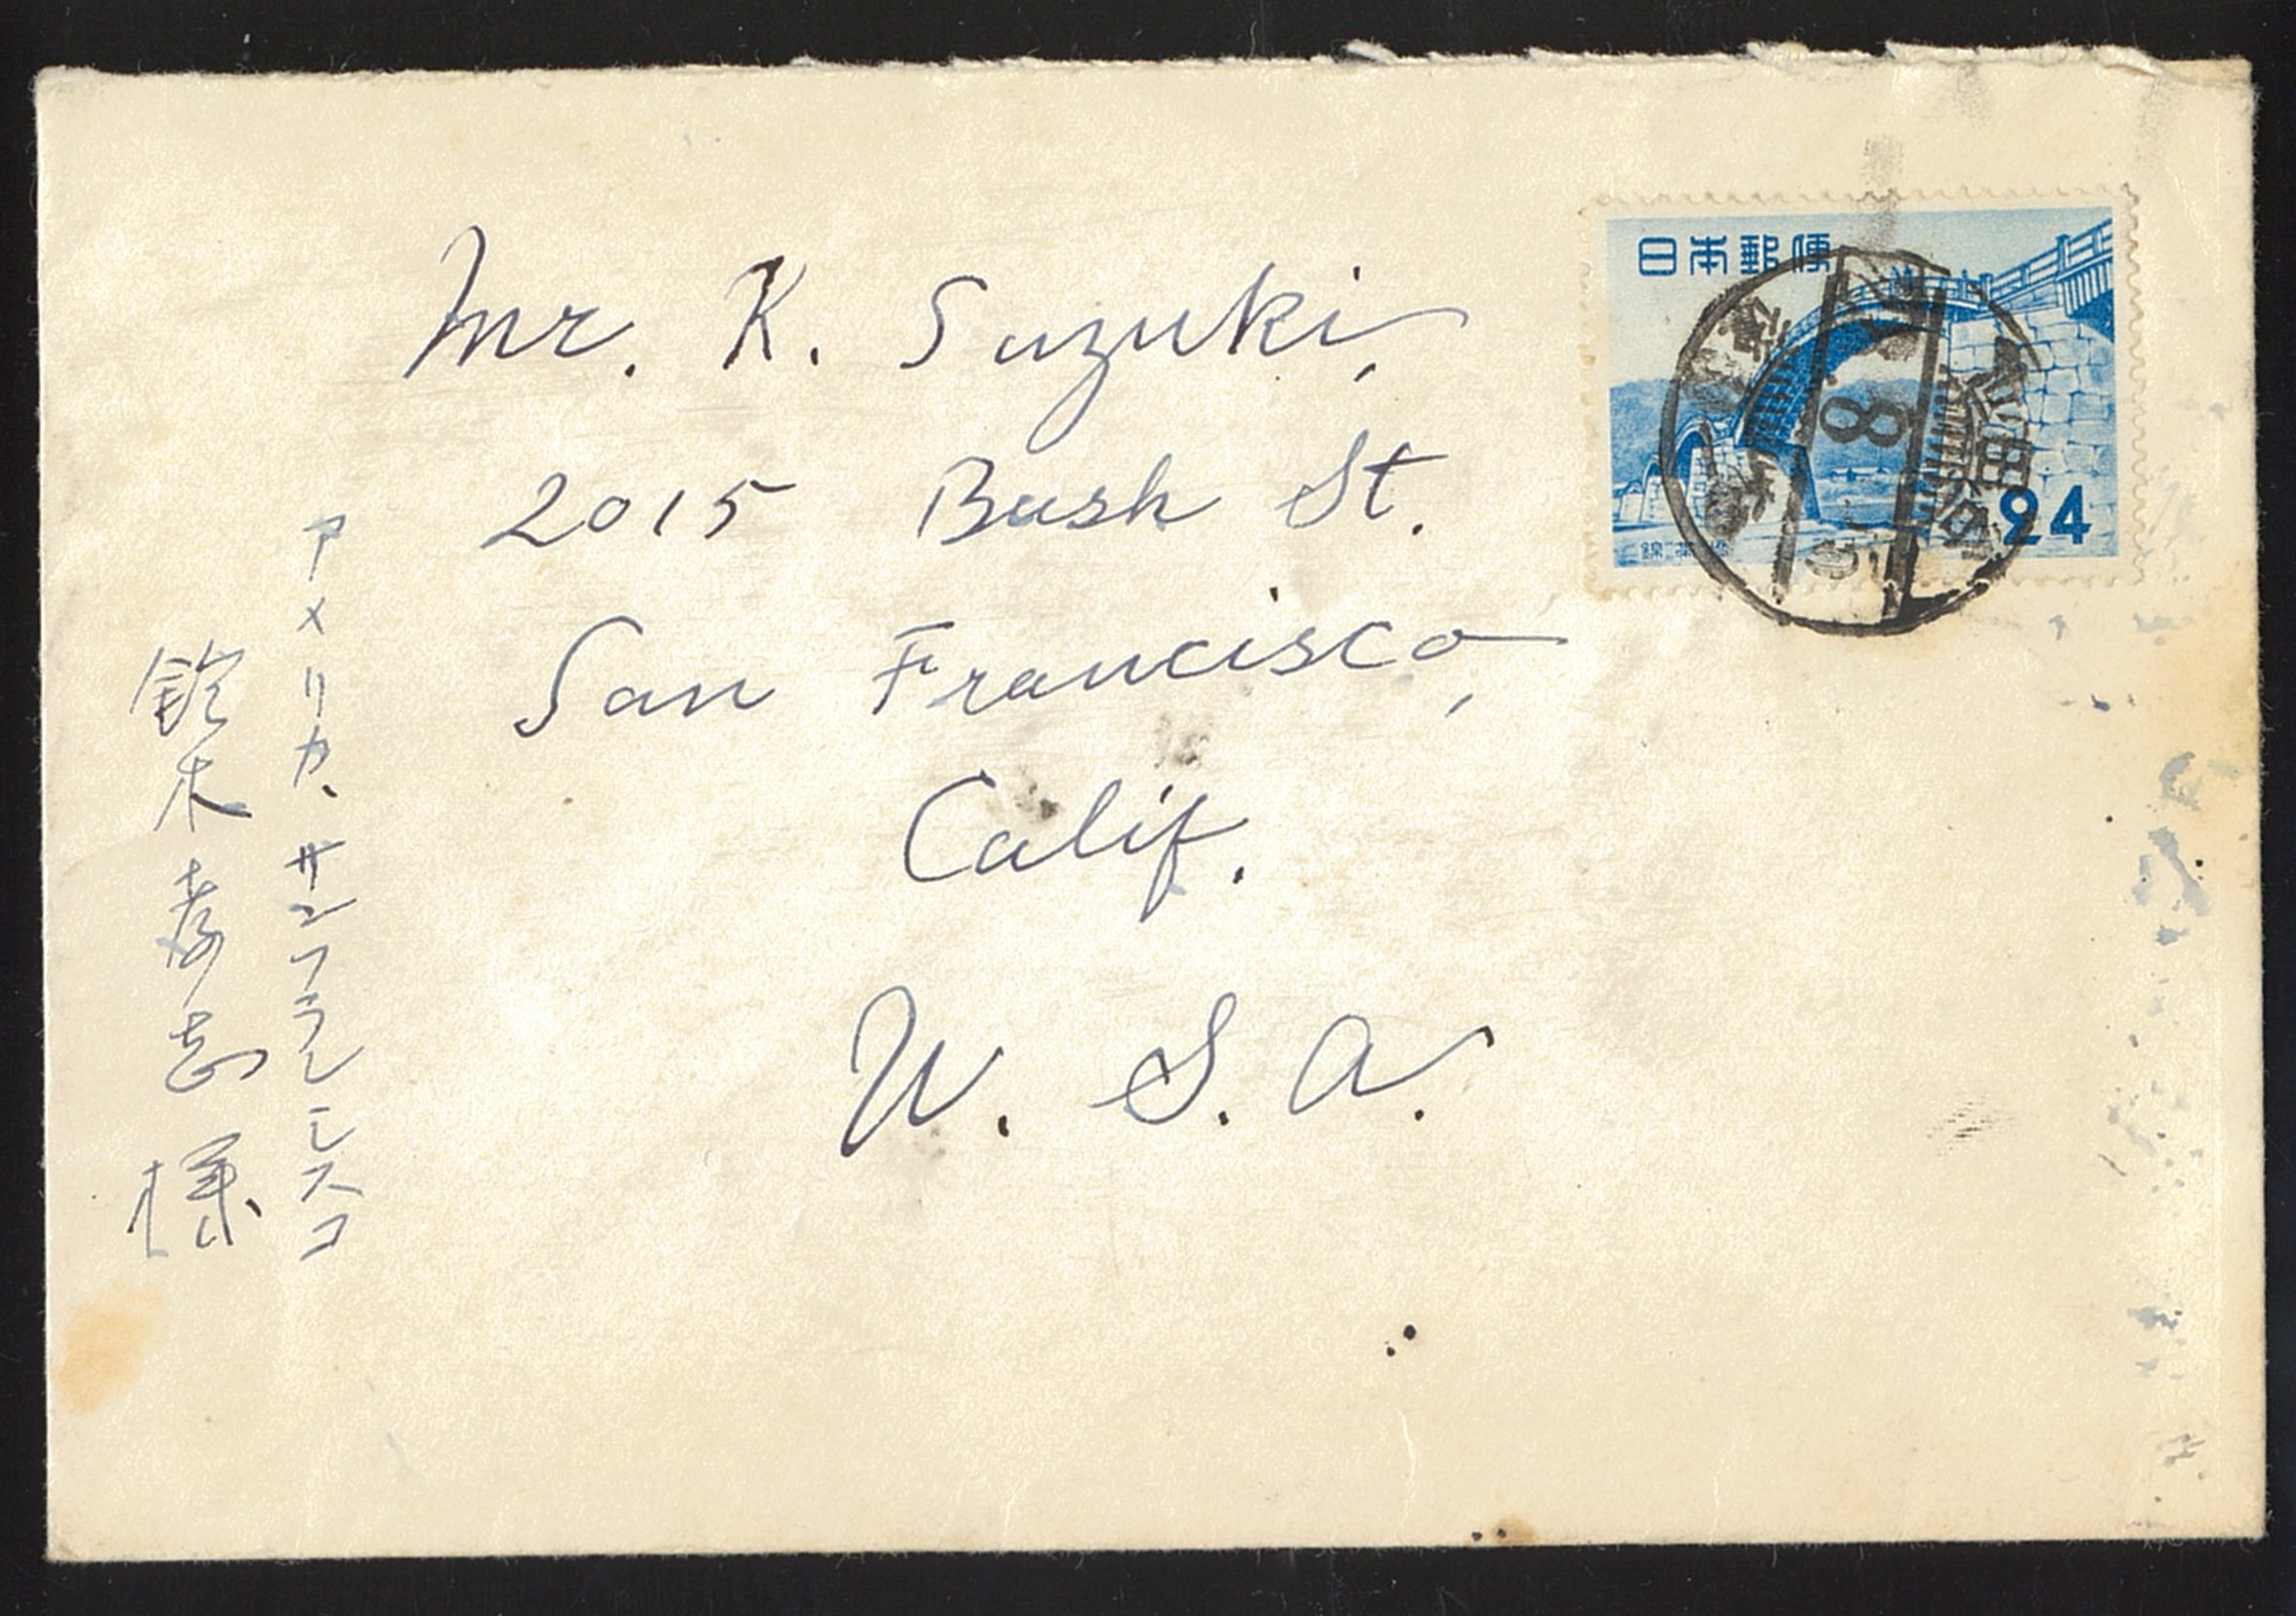 日本郵便
24
錦帯橋
8
Mr. K. Suzuki,
2015 Bush St.
San Francisco,
Calif.
U. S. A.
アメリカ、サンフランシスコ
鈴木孝志様